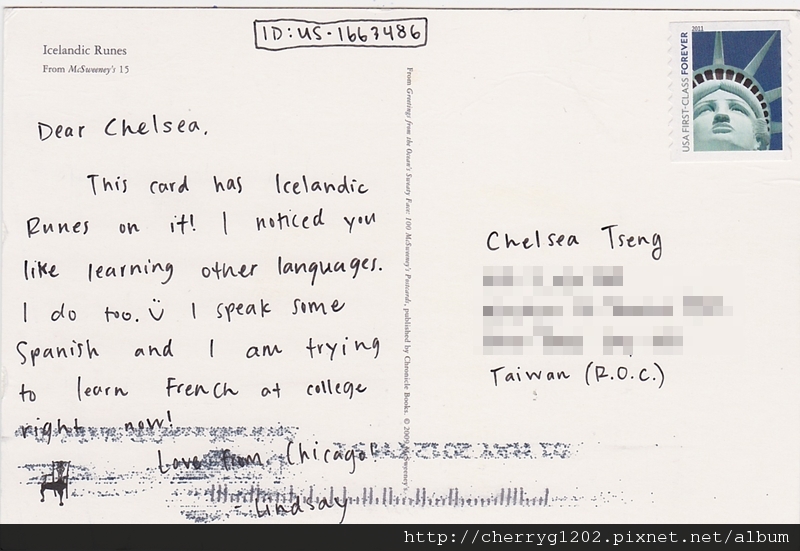 ID:US-1663486
Icelandic Runes
From McSweeney's 15
2011
USA FIRST-CLASS FOREVER
Dear Chelsea,
This card has Icelandic
Runes on it! I noticed you
like learning other languages.
I do too. I speak some
Spanish and I am trying
to learn French at college
right now!
Love from Chicago
- Lindsay
From Greetings from the Ocean's Sweaty Face: 100 McSweeney's Postcards, published by Chronicle Books. © 2009 McSweeney's
Chelsea Tseng
Taiwan (R.O.C.)
http://cherryg1202.pixnet.net/album